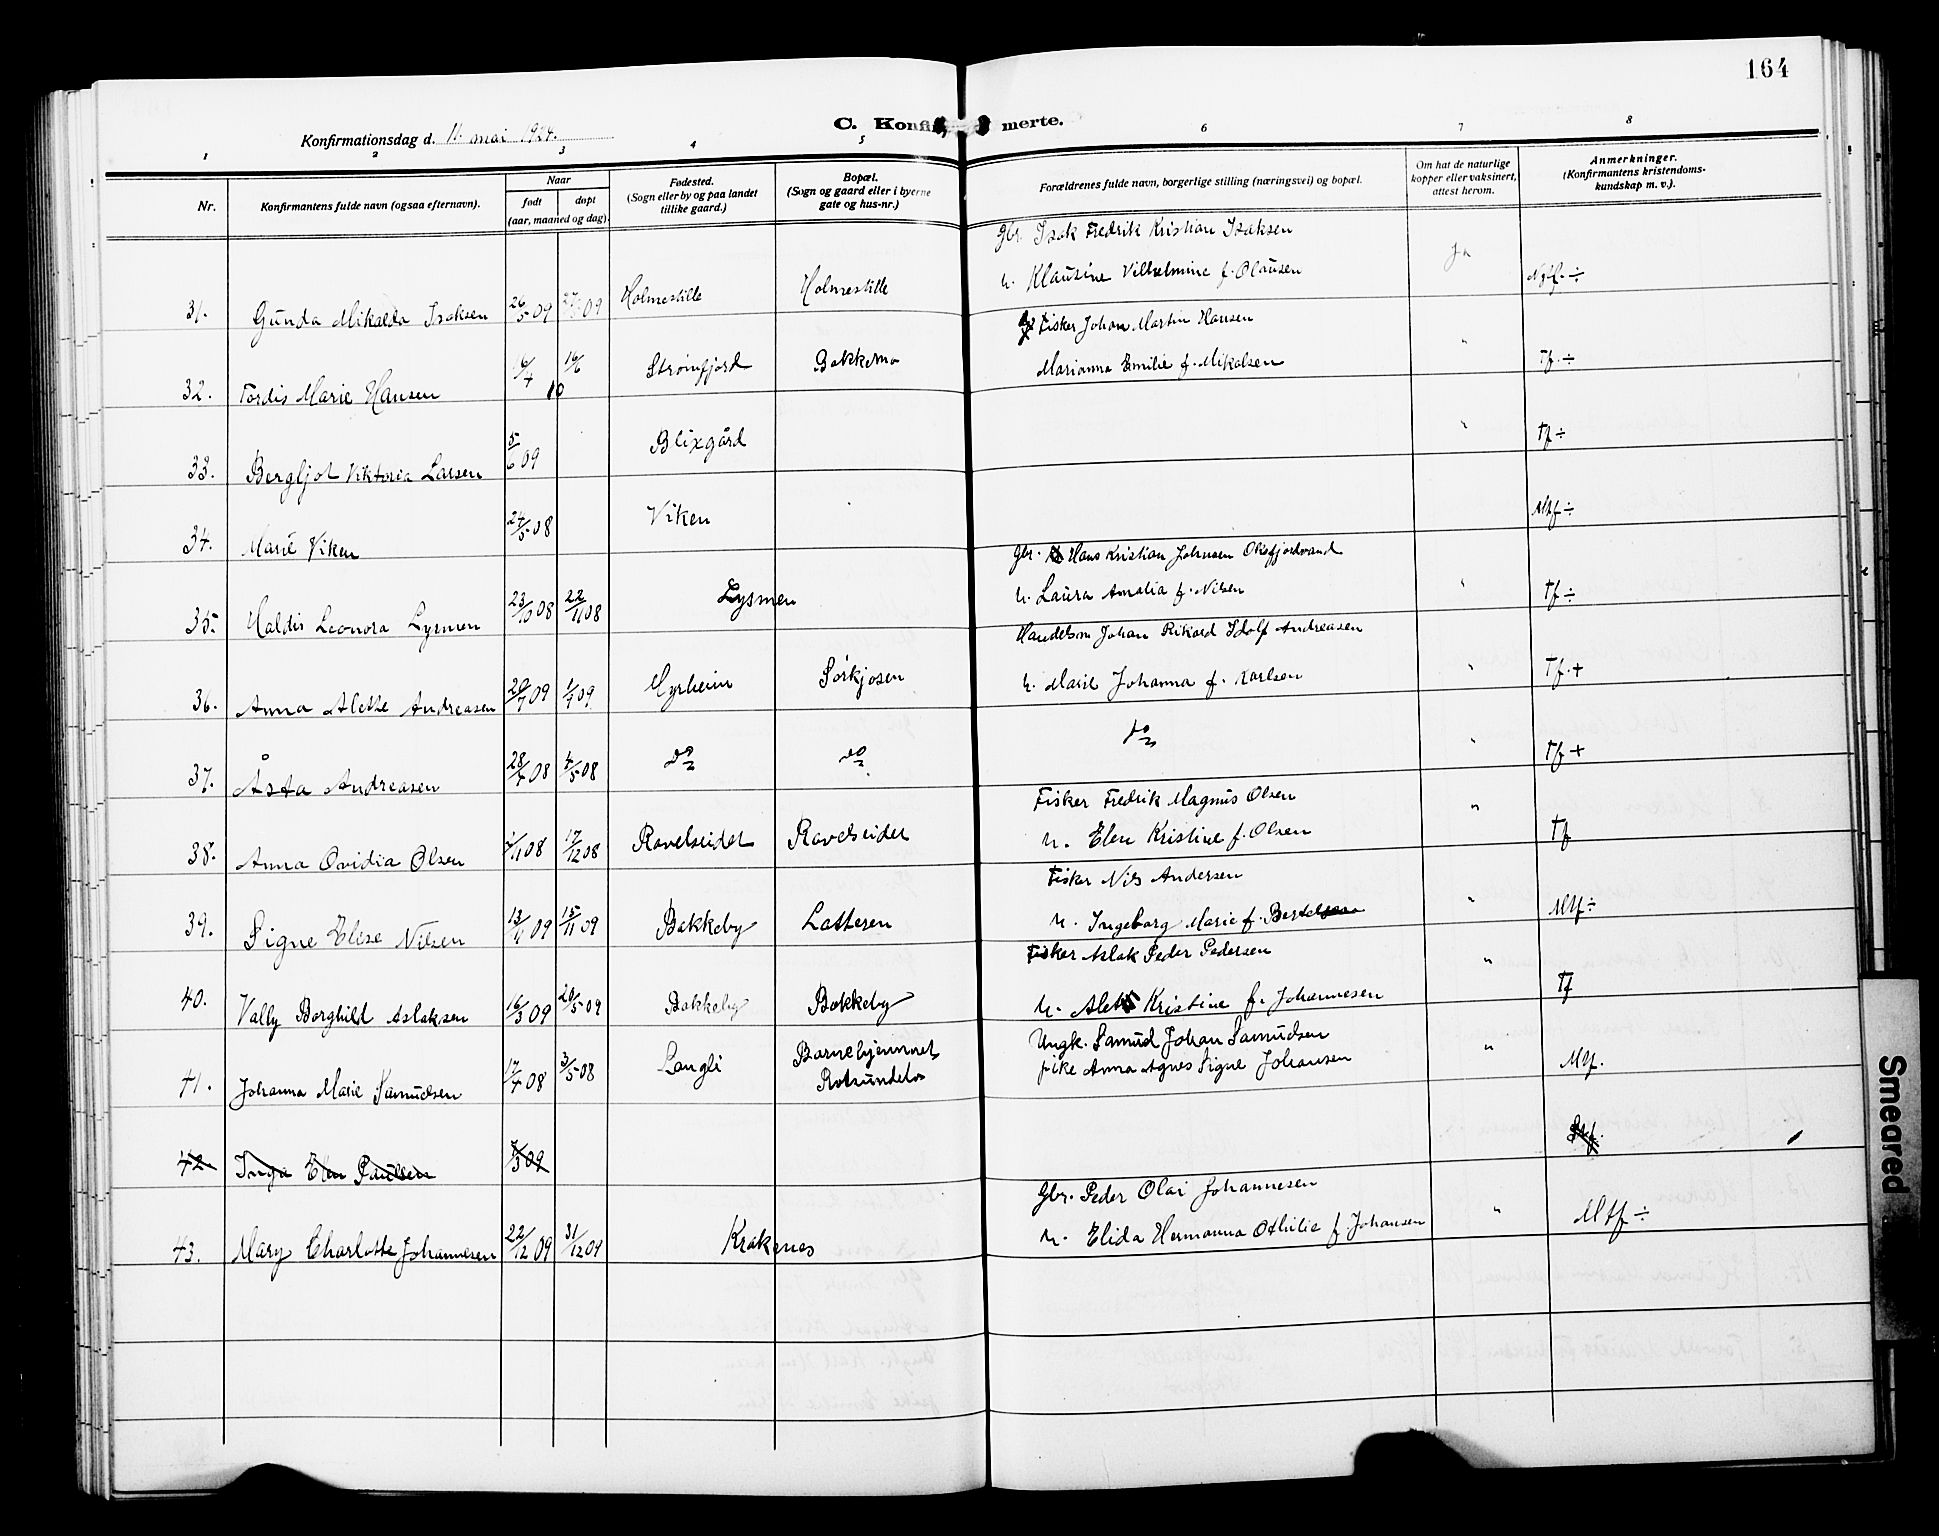 164
Konfirmationsdag d. 11. mai 1924.
C. Konfi merte.
1 2 3 4 5 6 7 8
Nr.
Konfirmantens fulde navn (ogsaa efternavn).
Naar
født døpt
(aar, maaned og dag).
Fødested.
(Sogn eller by og paa landet
tillike gaard.)
Bopæl.
(Sogn og gaard eller i byerne
gate og hus-nr.)
Forældrenes fulde navn, borgerlige stilling (næringsvei) og bopæl.
Om hat de naturlige
kopper eller vaksinert,
attest herom.
Anmerkninger.
(Konfirmantens kristendoms-
kundskap m. v.).
Gbr. Isak Fredrik Kristian Isaksen
31. Gunda Mikalda Isaksen 26/5 09 09 Holmestille Holmestille u. Klausine Vilhelmine f. Olausen Ja
Fisker Johan Martin Hansen
32. Tordis Marie Hansen 16/4 16/6 10 Strømfjord Bakkemo Marianna Emilie f. Mikalsen " Tf. ÷
33. Bergljot Viktoria Larsen 5/6 09 Blixgård " Tf ÷
34. Marie Viken 24/5 08 Viken Mtf ÷
Gbr. Hans Kristian Johnsen
35. Haldis Leonora Lysmen 23/10 08 22/11 08 Lysmen u. Laura Amalia f. Nilsen " Tf ÷
Handelsm Johan Rikard Idolf Andreasen
36. Anna Alette Andreasen 20/7 09 09 Myrheim Sørkjosen u. Marie Johanna f. Karlsen " Tf. +
37. Åsta Andreasen 28/4 08 08 do do do " Tf +
Fisker Fredrik Magnus Olsen
38. Anna Ovidia Olsen 11 08 17/12 08 Ravelseidet Ravelseidet u. Elen Kristine f. Olsen " Tf
Fisker Nils Andersen
39. Signe Elise Nilsen 13/ 09 15/11 09 Bakkeby Latteren u. Ingeborg Marie f. Bertelsen " Mtf ÷
Fisker Aslak Peder Pedersen
40. Vally Borghild Aslaksen 16/3 09 20/5 09 Bakkeby Bakkeby u. Kristine f. Johannesen " Tf
Ungk. Samuel Johan Samuelsen
41. Johanna Marie Samuelsen 17/4 08 3/5 08 Langli Barnehjemmet
Rotsundelv pike Anna Agnes Signe Johansen " Mtf.
42 Inga Elen Paulsen 7/3 09
Gbr. Peder Olai Johannesen
43. Mary Charlotte Johannesen 22/12 09 31/12 09 Krakenes u. Elida Hermanna Othilie f. Johansen " Mtf ÷
Smeared